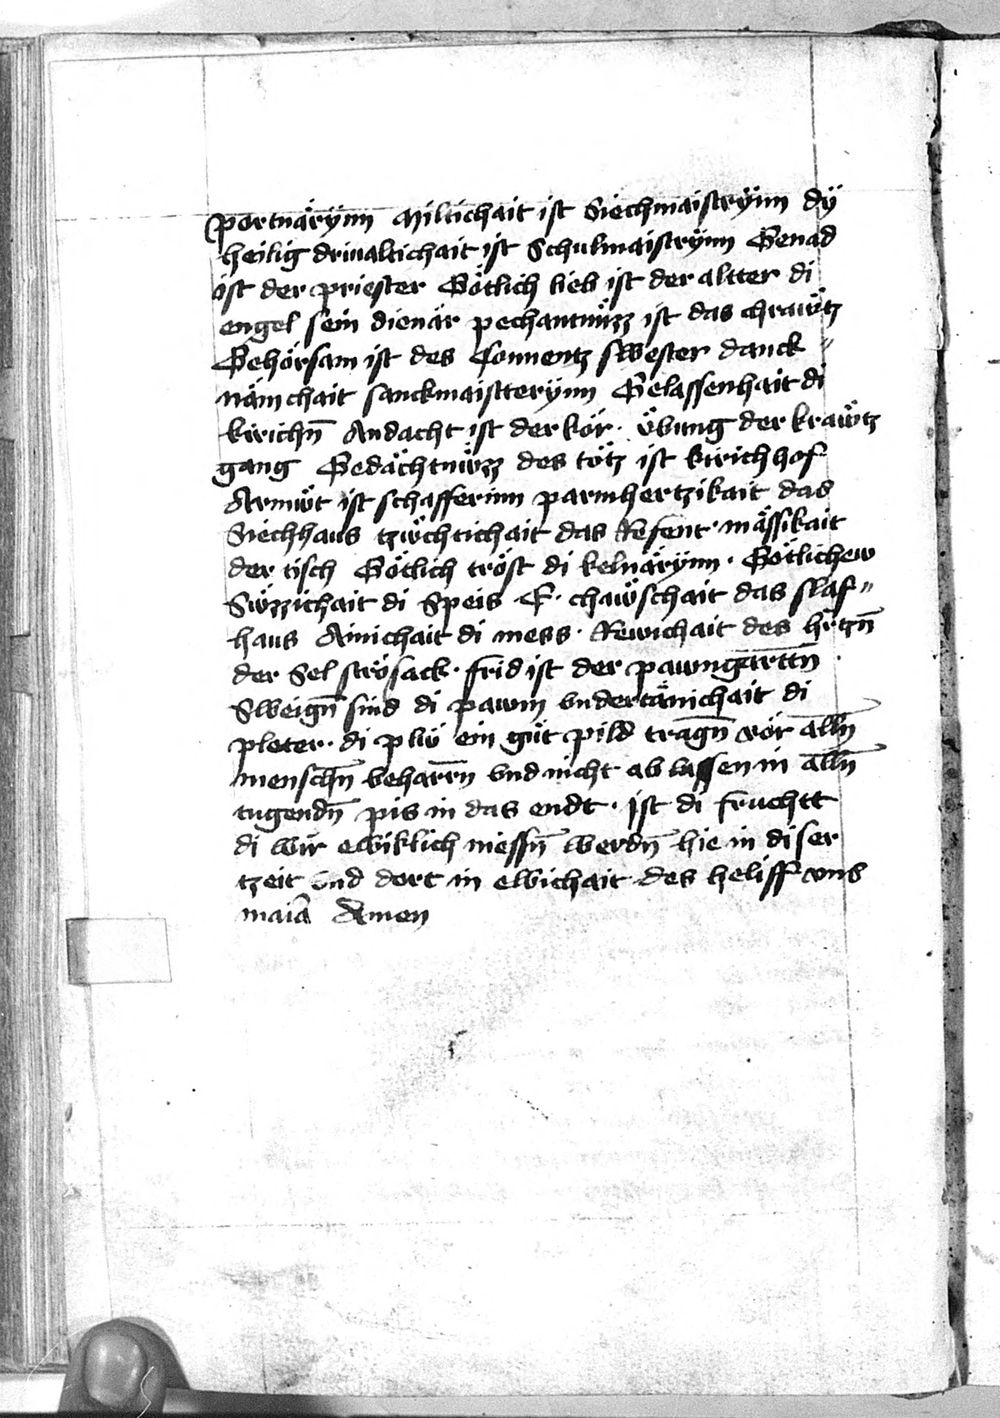 portnärÿnn Miltichait ist Siechmaistrÿnn dÿ
heilig driualtichait ist Schulmaistrÿnn Genad
ist der priester Götlich lieb ist der altter di
engel sein dienär pechantnüzz ist das chrawtz
Gehörsam ist des Conuentz swester danck〃
nämchait sanckmaistterÿnn Gelassenhait di
kirichn̄ Andacht ist der kör · übung der krawtz
gang Gedächtnüzz des tötz ist kirichhof
Armüt ist schafferinn parmhertzikait das
Siechhaus tzüchtichait das Refent · mässikait
der tisch Götlich tröst di kelnärÿnn · Götlichew
Süzzichait di Speis chawschait das slaf〃
haus Ainichait di mess · Rewichait des hrtzn̄
der Sel strosack · frid ist der pawmgarttn̄
Sweign̄ sind di pawm vndertänichait di
pleter · di plü ein güt pild tragn̄ vör alln̄
menschn̄ beharrn̄ vnd nicht ab lassen in alln̄
tugendn̄ pis in das endt · ist di fruchtt
di wir ewiklich niessn̄ werdn̄ hie in diser
tzeit vnd dort in ewichait des heliff vns
maiā Amen